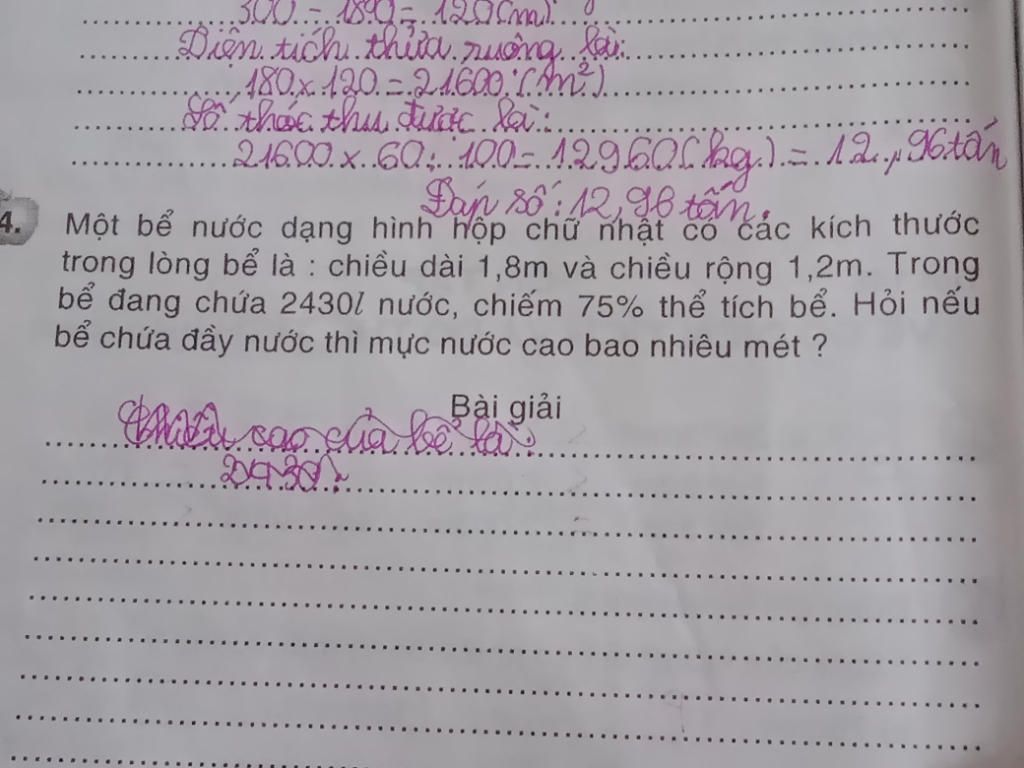 300 - 180 = 120 (m)
Diện tích thửa ruộng là:
180 x 120 = 21600 (m²)
Số thóc thu được là:
21600 x 60 : 100 = 12960 (kg) = 12,96 tấn
Đáp số: 12,96 tấn.
4. Một bể nước dạng hình hộp chữ nhật có các kích thước
trong lòng bể là : chiều dài 1,8m và chiều rộng 1,2m. Trong
bể đang chứa 2430l nước, chiếm 75% thể tích bể. Hỏi nếu
bể chứa đầy nước thì mực nước cao bao nhiêu mét ?
Bài giải
Chiều cao của bể là:
2430 :